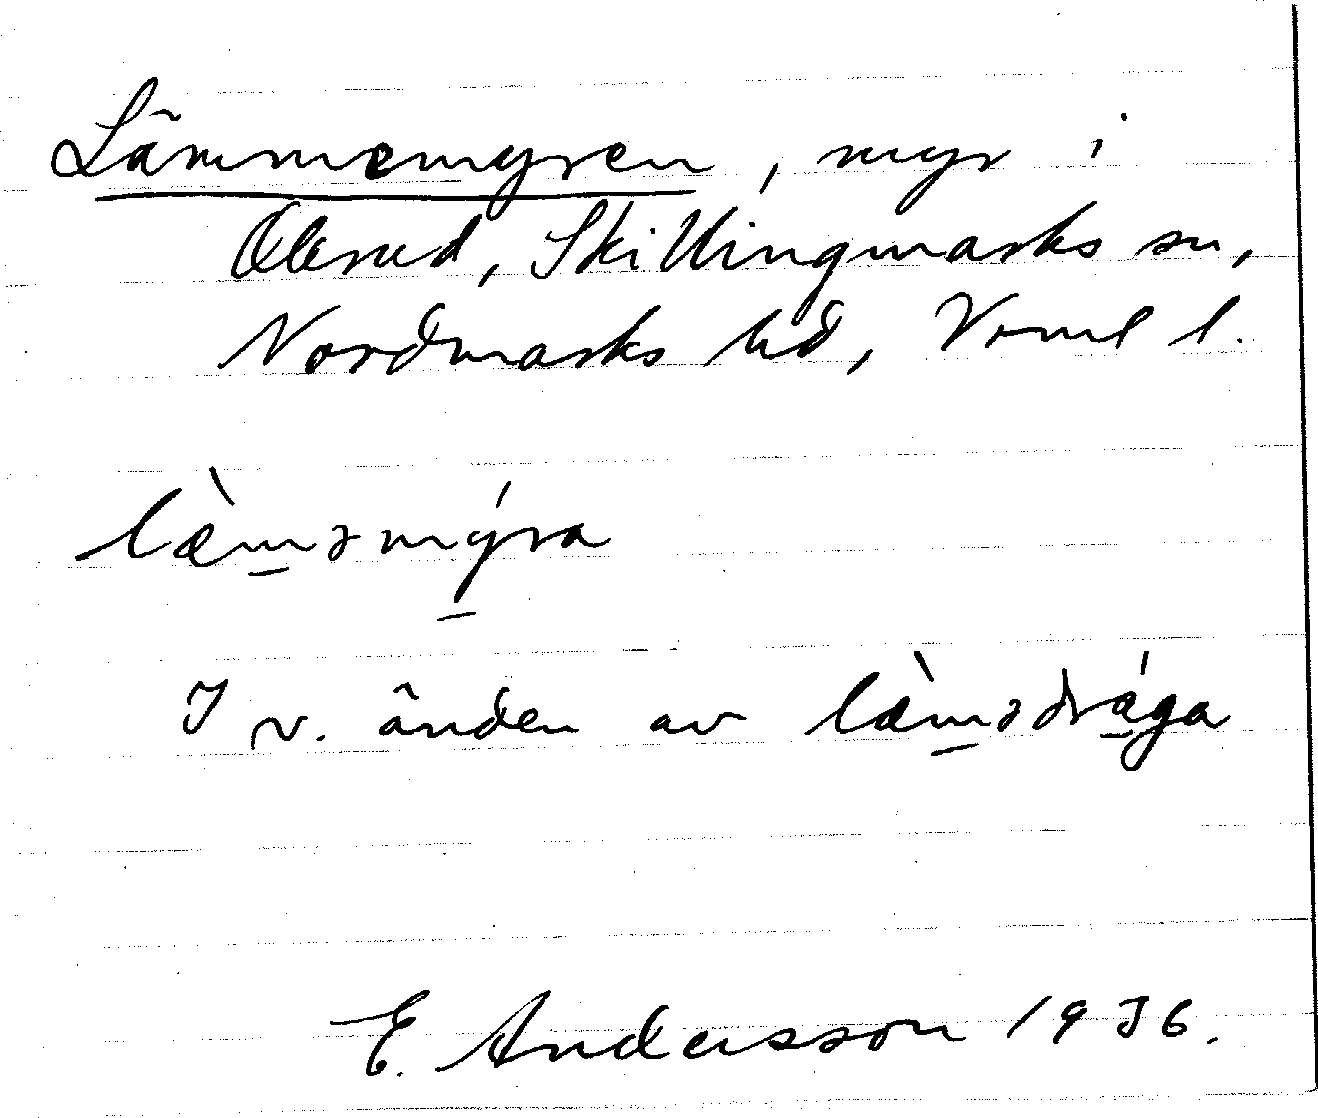 Lämmemyren, myr i
Olerud, Skillingmarks sn,
Nordmarks hd, Verml l.
læ̀m̱əmýra
I v. änden av læ̀m̱ədrá̱ga
E. Andersson 1936.